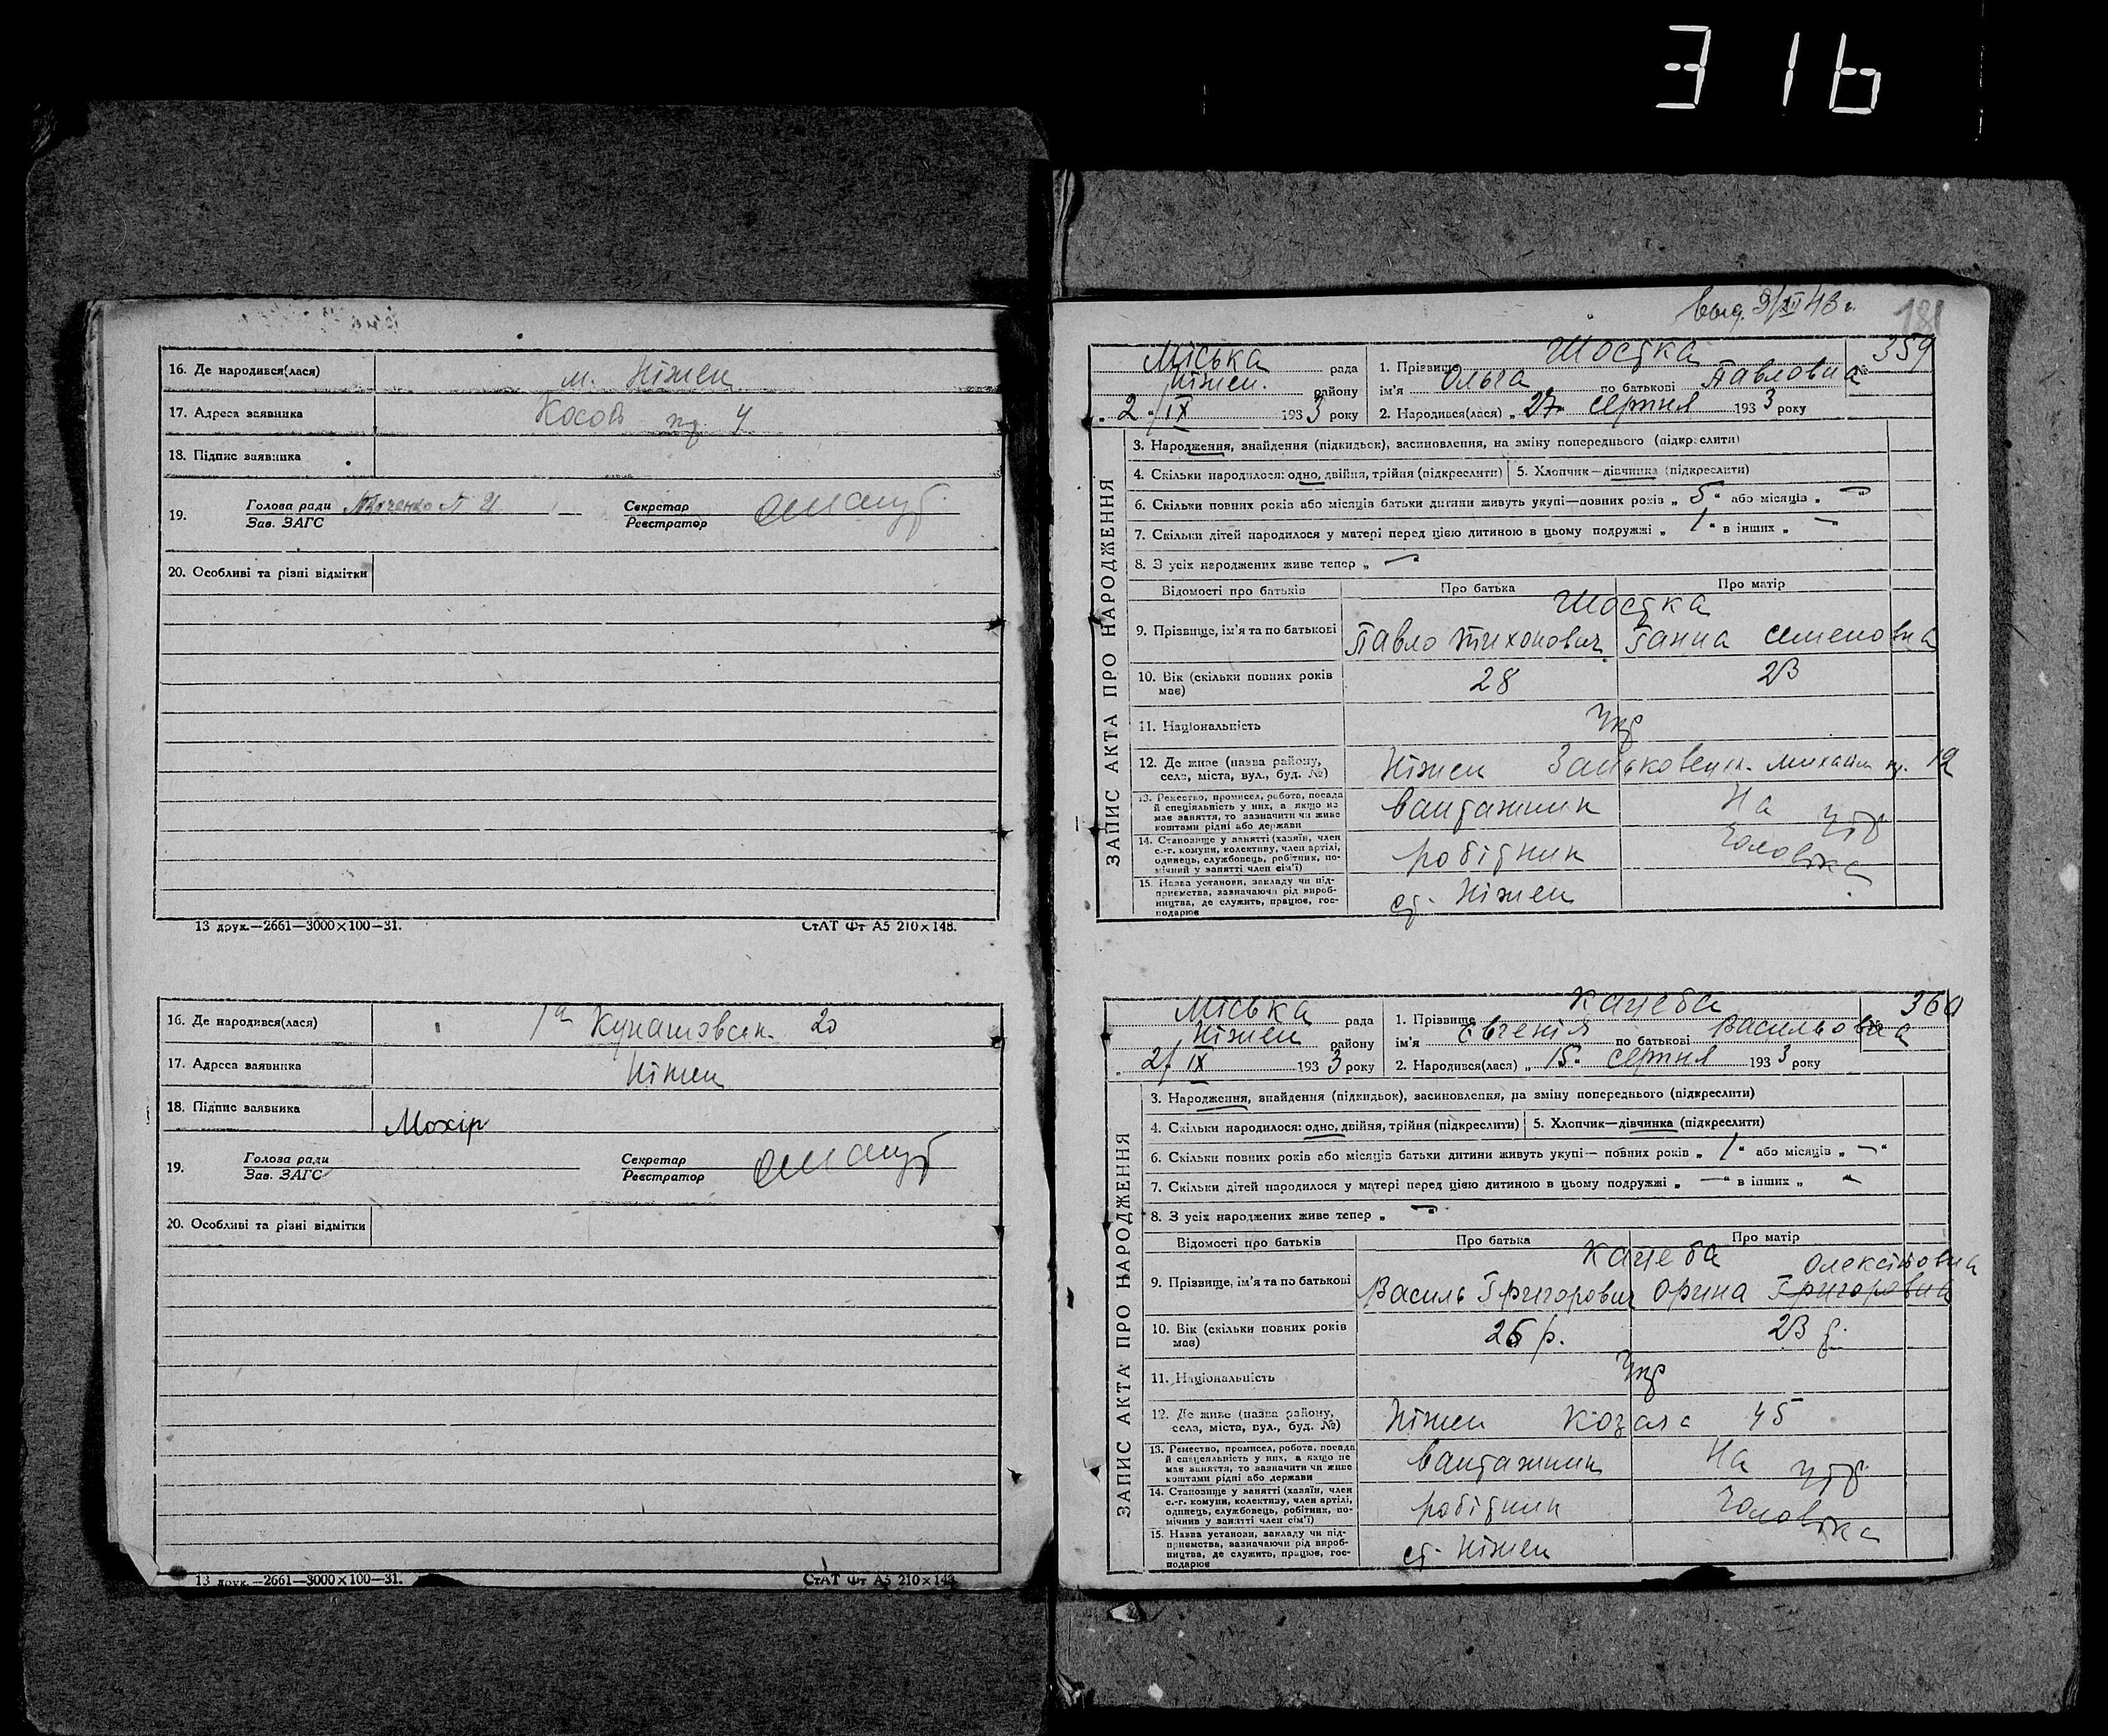 316
16. Де народився(лася) м. Ніжен
17. Адреса заявника
18. Підпис заявника
19. Голова ради
Зав. ЗАГС
Секретар
Реєстратор
20. Особливі та різні відмітки
13 друк.—2661—3000×100—31. СтАТ Фт А5 210×148.
16. Де народився(лася) 20
17. Адреса заявника Ніжен
18. Підпис заявника Мохір
19. Голова ради
Зав. ЗАГС
Секретар
Реєстратор
20. Особливі та різні відмітки
13 друк.—2661—3000×100—31. СтАТ Фт А5 210×148.
ЗАПИС АКТА ПРО НАРОДЖЕННЯ
Міська рада
Ніжен. району
2/IX 1933 року
1. Прізвище Шостка № 359
ім'я Ольга по батькові Павловна
2. Народився(лася) „27" серпня 1933 року
3. Народження, знайдення (підкидьок), засиновлення, на зміну попереднього (підкреслити)
4. Скільки народилося: одно, двійня, трійня (підкреслити) 5. Хлопчик—дівчинка (підкреслити)
6. Скільки повних років або місяців батьки дитини живуть укупі—повних років „ 5 " або місяців „ — "
7. Скільки дітей народилося у матері перед цією дитиною в цьому подружжі „ 1 " в інших „ —
8. З усіх народжених живе тепер „ —
Відомості про батьків Про батька Про матір
Шостка
9. Прізвище, ім'я та по батькові Павло Тихонович Ганна Семеновна
10. Вік (скільки повних років має) 28 23
11. Національність Укр
12. Де живе (назва району, села, міста, вул., буд. №) Ніжен 19
13. Ремество, промисел, робота, посада й спеціяльність у них, а якщо не має заняття, то зазначити чи живе коштами рідні або держави вантажник На утр
14. Становище у занятті (хазяїн, член с.-г. комуни, колективу, член артілі, одинець, службовець, робітник, помічний у занятті член сім'ї) робітник чоловіка
15. Назва установи, закладу чи підприємства, зазначаючи рід виробництва, де служить, працює, господарює ст. Ніжен
ЗАПИС АКТА ПРО НАРОДЖЕННЯ
Міська рада
Ніжен району
2/IX 1933 року
1. Прізвище Кацеба № 360
ім'я Євгенія по батькові Васильовна
2. Народився(лася) „15" серпня 1933 року
3. Народження, знайдення (підкидьок), засиновлення, на зміну попереднього (підкреслити)
4. Скільки народилося: одно, двійня, трійня (підкреслити) 5. Хлопчик—дівчинка (підкреслити)
6. Скільки повних років або місяців батьки дитини живуть укупі— повних років „ 1 " або місяців „ — "
7. Скільки дітей народилося у матері перед цією дитиною в цьому подружжі „ — " в інших „ —
8. З усіх народжених живе тепер „ — "
Відомості про батьків Про батька Про матір
Кацеба
9. Прізвище, ім'я та по батькові Василь Григорович Орина Григоровна
10. Вік (скільки повних років має) 26 р. 23 р.
11. Національність Укр
12. Де живе (назва району, села, міста, вул., буд. №) Ніжен 45
13. Ремество, промисел, робота, посада й спеціяльність у них, а якщо не має заняття, то зазначити чи живе коштами рідні або держави вантажник На утр
14. Становище у занятті (хазяїн, член с.-г. комуни, колективу, член артілі, одинець, службовець, робітник, помічник у занятті член сім'ї) робітник чоловіка
15. Назва установи, закладу чи підприємства, зазначаючи рід виробництва, де служить, працює, господарює ст. Ніжен